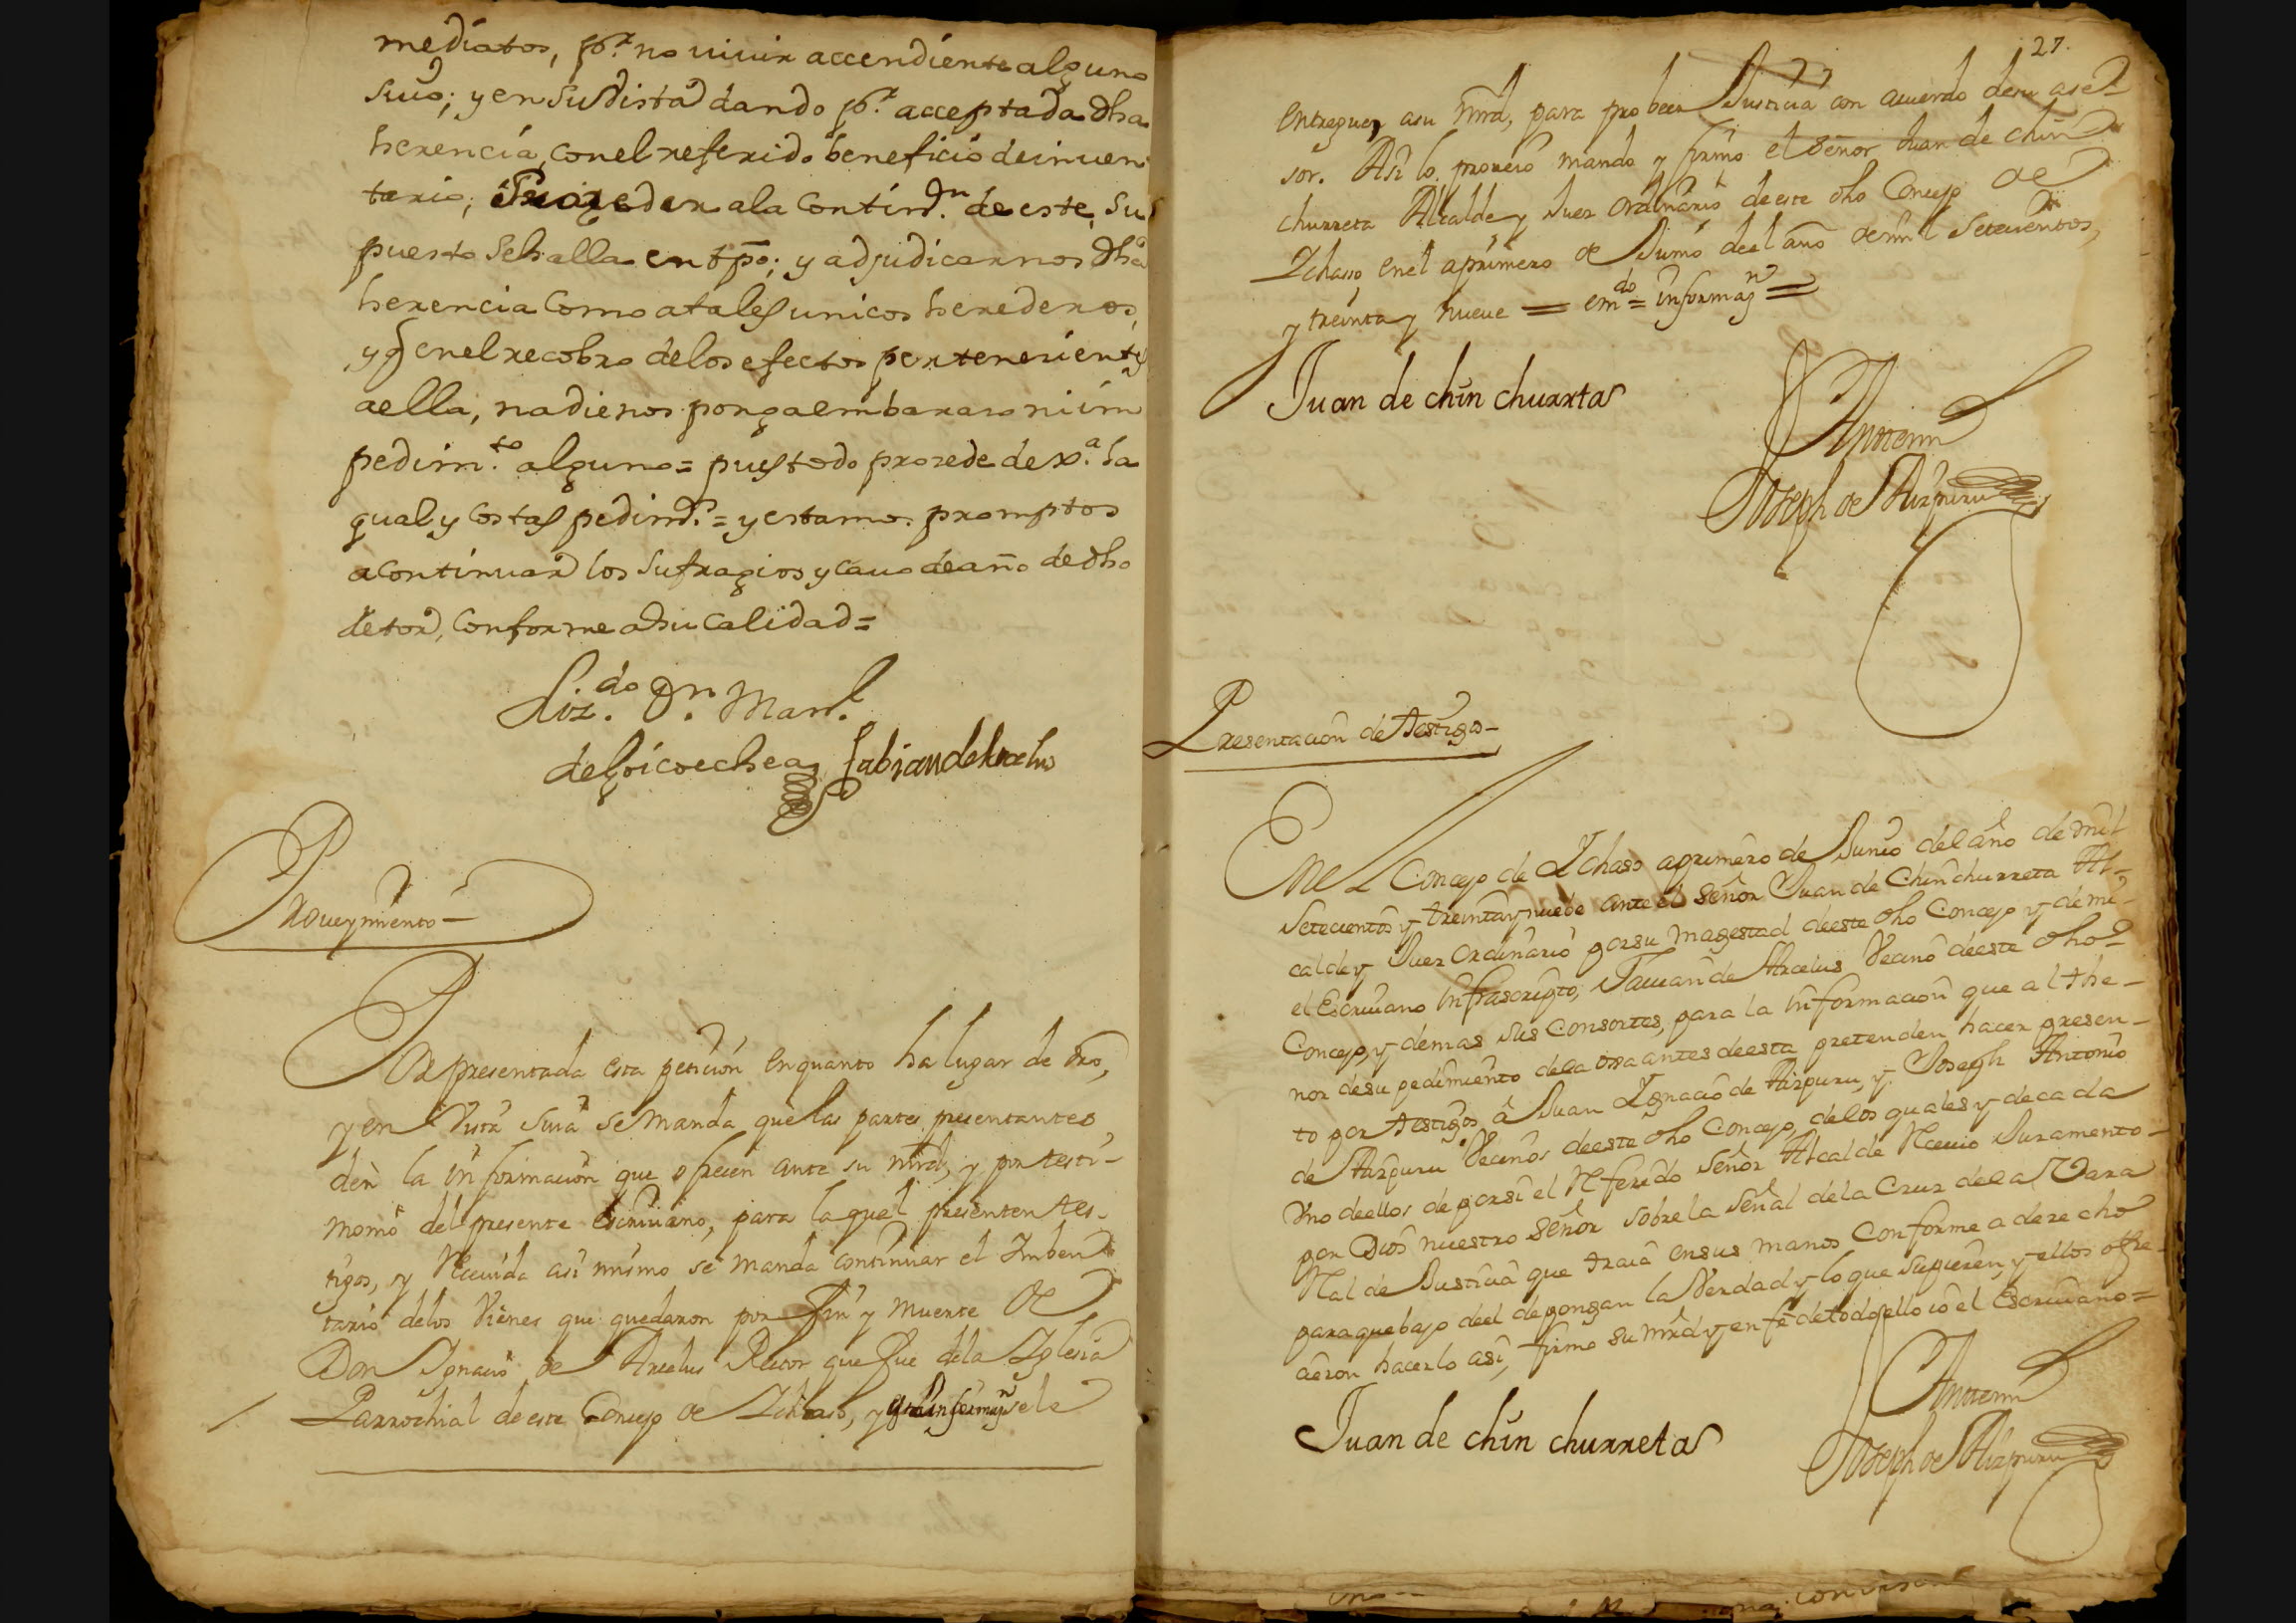 mediatos, p.r no vivir accendiente alguno
suio; y en su vista dando p.r acceptada dha
herencia, con el referido beneficio de inuen
tario; Proceder a la Contin.on de este, su
puesto se halla en tpo; y adjudicarnos dha
herencia Como a tales unicos herederos,
y q en el recobro de los efectos perteneciente
a ella, nadie nos ponga embaraso ni im
pedim.to alguno = pues todo prosede de x.a la
qual y Costas pedimos = y estamos promptos
a continuar los sufragios y cauo de año de dho
Retor, Conforme a su Calidad =
Liz.do Dn. Man.l
de Goicoechea Fabian de Arcelus
Proueymiento –
Por presentada esta peticion en quanto ha lugar de dro,
y en Vista suia se manda que las partes presentantes
den la informacion que ofrecen ante su mrd, y por testi-
monio del presente escriuano, para la qual presenten tes-
tigos, y Receuida asi mismo se manda continuar el Imben
tario de los Vienes que quedaron por fin y muerte de
Don Ignacio de Arcelus Rector que fue de la Iglesia
Parrochial de este Concejo de Ichaso, y dha informazn se le
27.
entregue, a su mrd, para probeer Justicia con acuerdo de su ase
sor. Asi lo proueio mando y firmo el Señor Juan de chin
churreta Alcalde y Juez Ordinario de este dho Concejo de
Ichaso, en el a primero de Junio deel año de mil Setecientos,
y treinta y nueue = em.do = informazn =
Juan de chin churrta
Antemi
Joseph de Aizpuru
Presentacion de testigos –
En el Concejo de Ichaso a primero de Junio del año de mil
Setecientos y treinta y nuebe ante el señor Juan de Chinchurreta Al-
calde y Juez Ordinario por su Magestad de este dho Concejo y de mi
el Escriuano Infrascripto, Fauian de Arcelus Vecino de este dho
Concejo, y demas sus Consortes, para la Informacion que al the-
nor de su pedimiento de la ora antes de esta pretenden hacer presen-
to por testigos â Juan Ignacio de Aizpuru, y Joseph Antonio
de Aizpuru Vecinos de este dho Concejo, de los quales y de cada
Vno de ellos de por si el Referido Señor Alcalde Receuio Juramento
por Dios nuestro señor sobre la señal de la Cruz de la Vara
Real de Justicia que traia en sus manos Conforme a derecho
para que bajo de el depongan la Verdad y lo que supieren, y ellos ofre-
cieron hacerlo asi, firmo su mrd y en fe de todo ello io el Escriuano =
Juan de chin churreta
Antemi
Joseph de Aizpuru